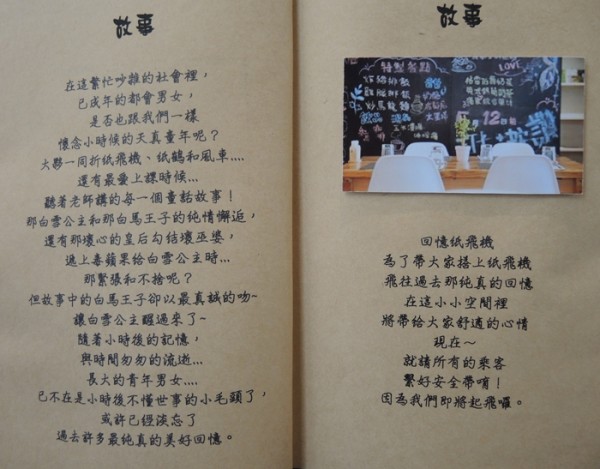 故事
在這繁忙吵雜的社會裡，
已成年的都會男女，
是否也跟我們一樣
懷念小時候的天真童年呢？
大夥一同折紙飛機、紙鶴和風車....
還有最愛上課時候...
聽著老師講的每一個童話故事！
那白雪公主和那白馬王子的純情邂逅，
還有那壞心的皇后勾結壞巫婆，
遞上毒蘋果給白雪公主時...
那緊張和不捨呢？
但故事中的白馬王子卻以最真誠的吻~
讓白雪公主醒過來了~
隨著小時後的記憶，
與時間匆匆的流逝...
長大的青年男女....
已不在是小時後不懂世事的小毛頭了，
或許已經淡忘了
過去許多最純真的美好回憶。
故事
特製餐點
LOVE
12
回憶紙飛機
為了帶大家搭上紙飛機
飛往過去那純真的回憶
在這小小空間裡
將帶給大家舒適的心情
現在～
就請所有的乘客
繫好安全帶唷！
因為我們即將起飛囉。